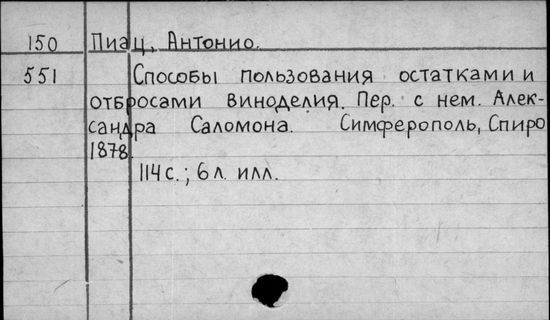 150 Пиац, Антонио.
551 Способы пользования остатками и
отбросами виноделия. Пер. с нем. Алек-
сандра Саломона. Симферополь, Спиро
1878.
114 с.; 6 л. илл.